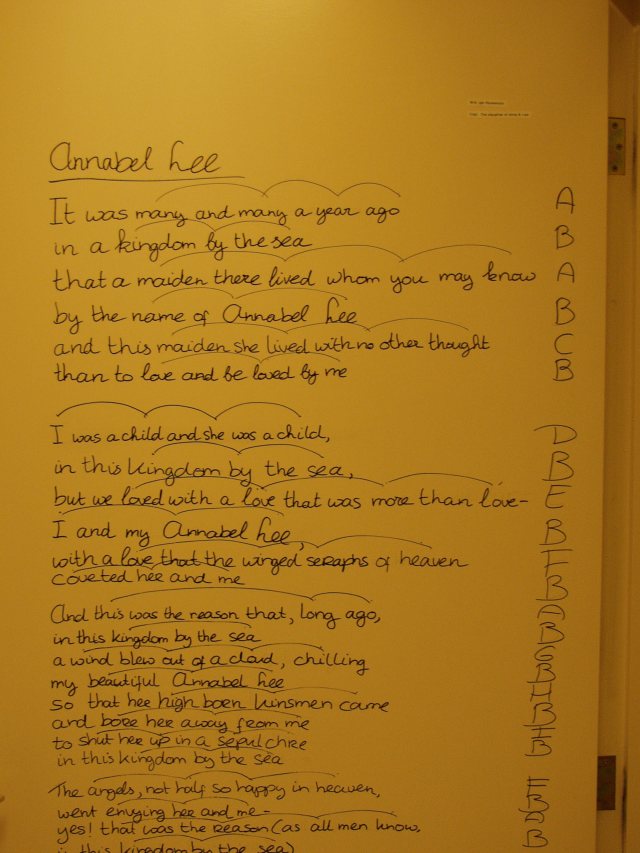 Annabel Lee
It was many and many a year ago A
in a kingdom by the sea B
that a maiden there lived whom you may know A
by the name of Annabel Lee B
and this maiden she lived with no other thought C
than to love and be loved by me B
I was a child and she was a child, D
in this kingdom by the sea, B
but we loved with a love that was more than love- E
I and my Annabel Lee, B
with a love that the winged seraphs of heaven F
coveted her and me B
And this was the reason that, long ago, A
in this kingdom by the sea B
a wind blew out of a cloud, chilling G
my beautiful Annabel Lee B
so that her high born kinsmen came H
and bore her away from me B
to shut her up in a sepulchire I
in this kingdom by the sea B
The angels, not half so happy in heaven, F
went envying her and me- B
yes! that was the reason (as all men know, A
in this kingdom by the sea) B